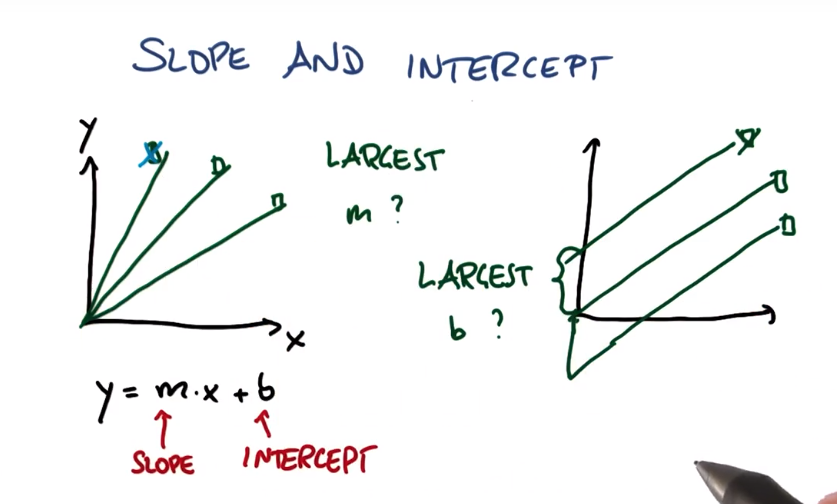 SLOPE AND INTERCEPT
Y
LARGEST
m ?
X
LARGEST
b ?
y = m·x + b
SLOPE
INTERCEPT